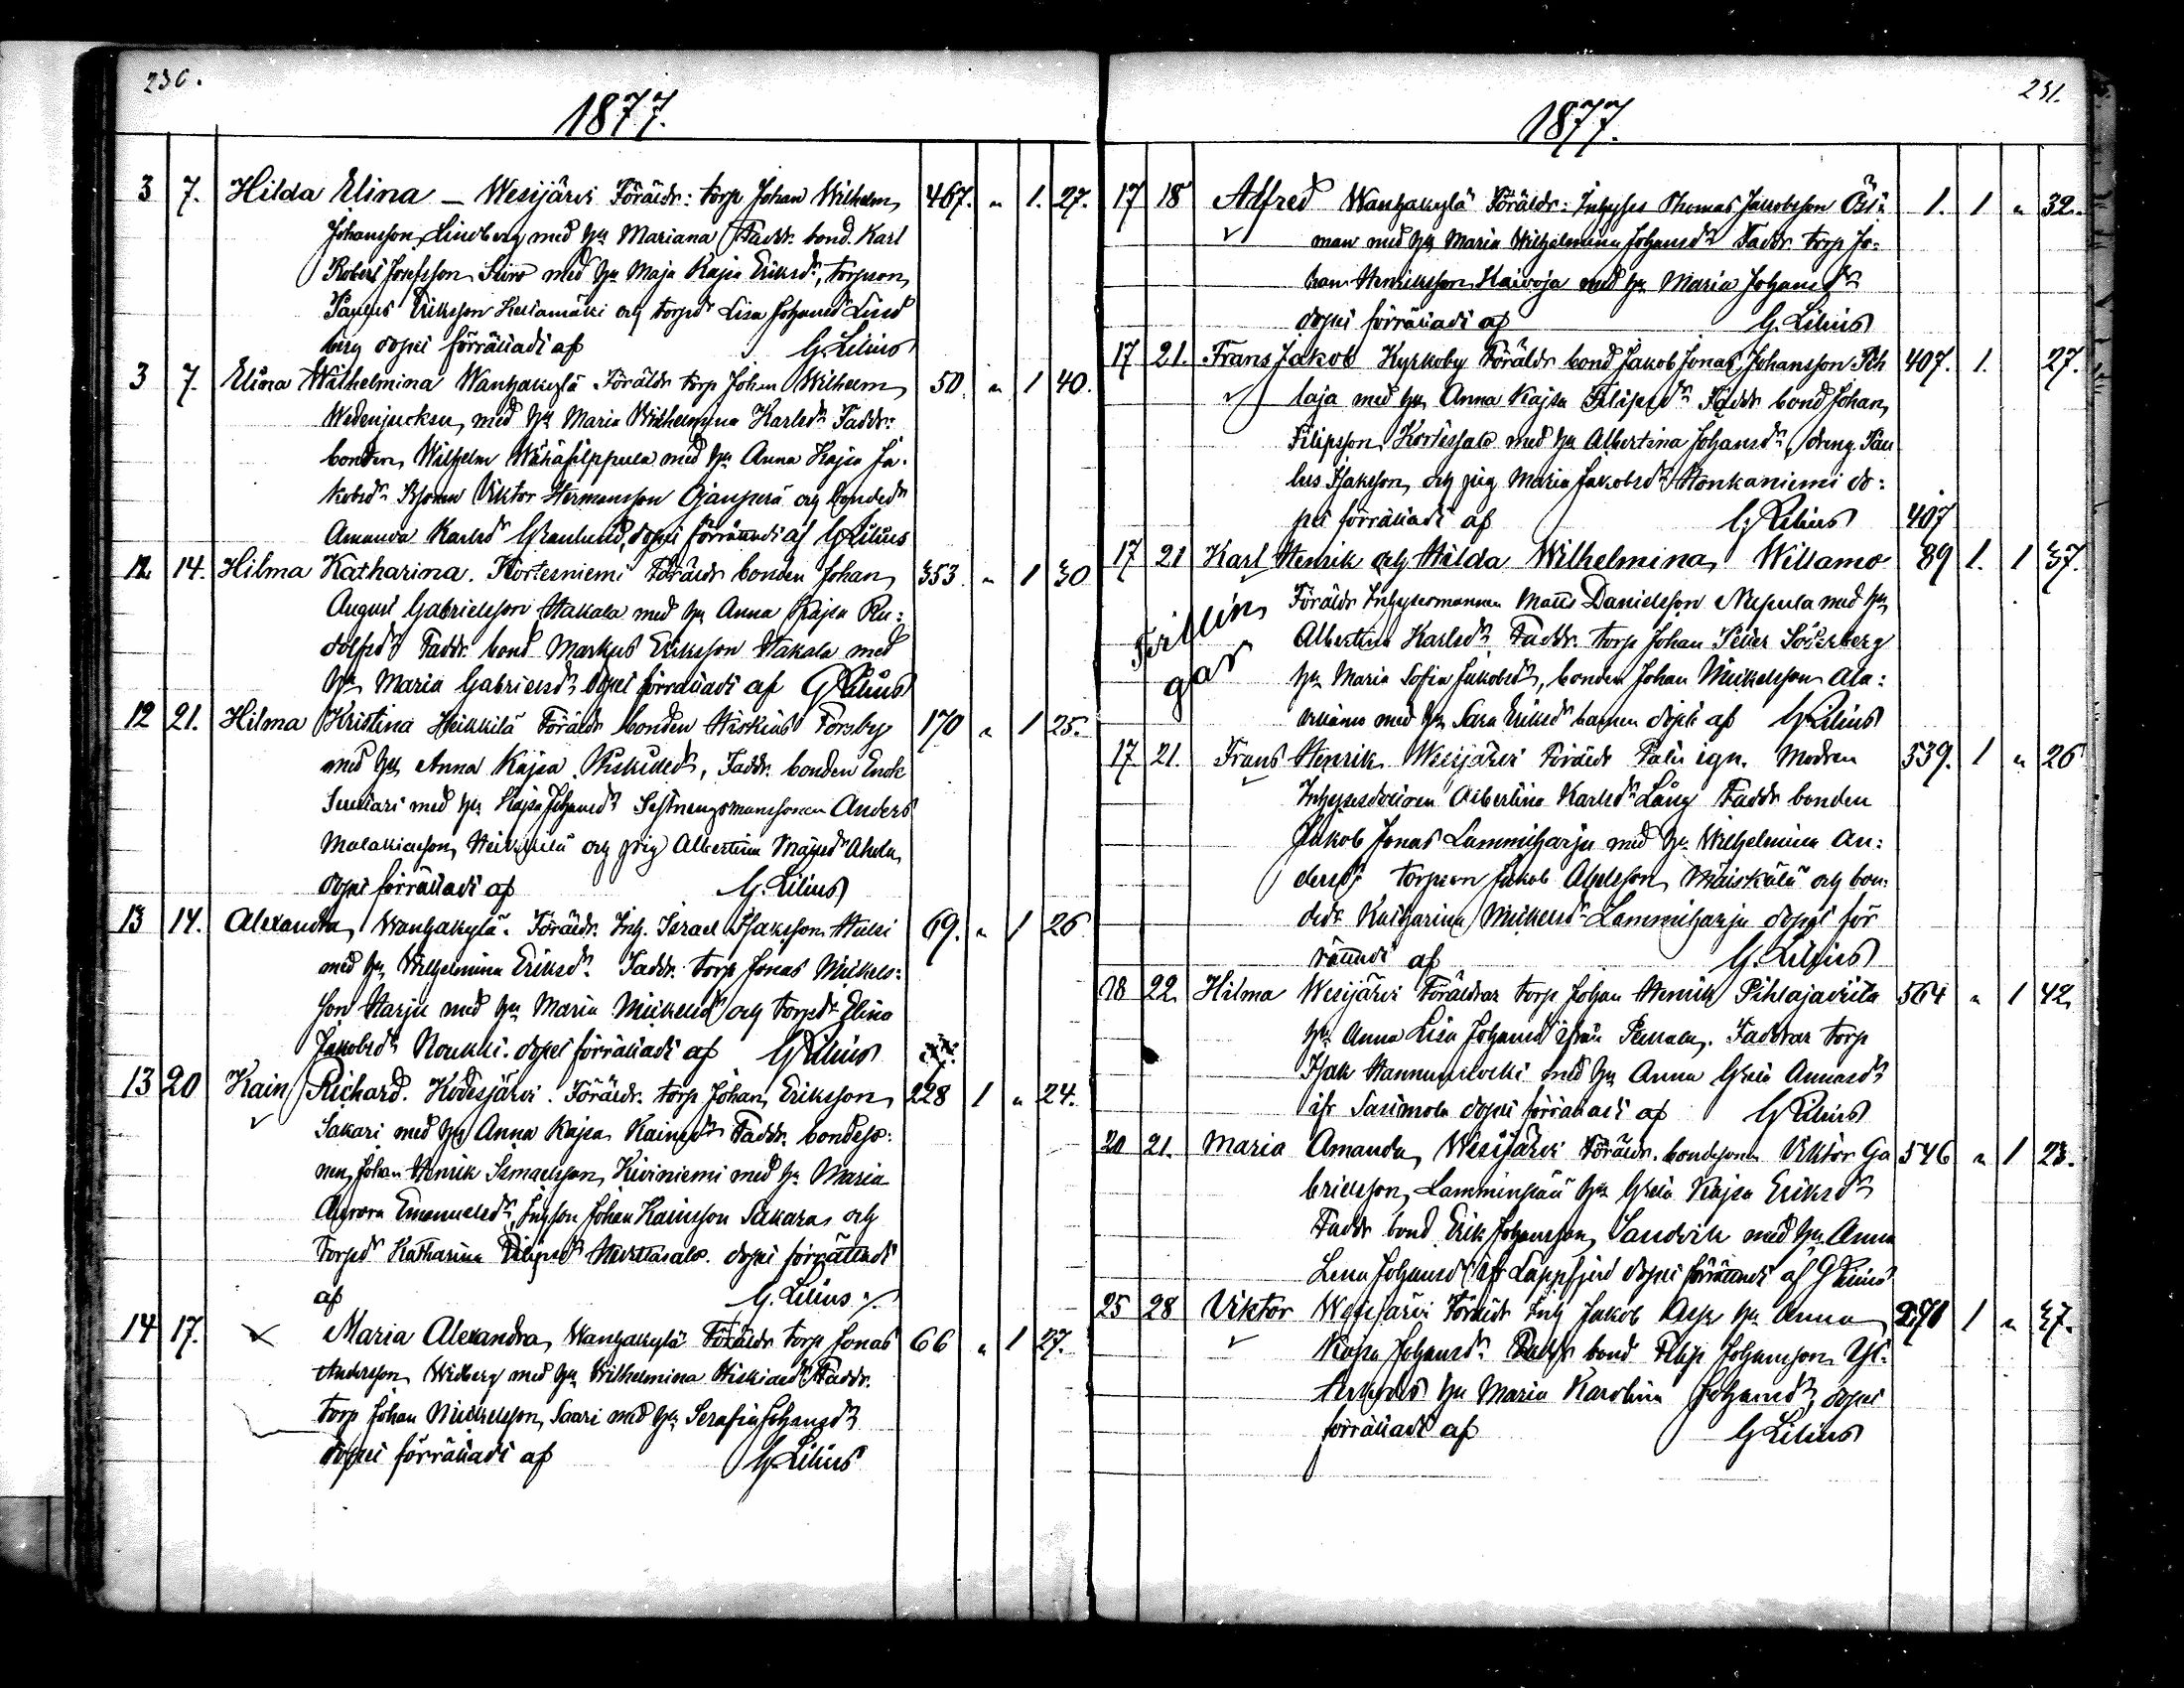 230.
1877.
3 7. Hilda Elina — Wesijärvi Föräldr: torp Johan Wilhelm 467. " 1. 27.
Johansson Lindberg med hu Mariana Faddr. bond. Karl
Robert Josefsson med hu Maja Kajsa Eriksdr, torpson
Eriksson och torpdr Lisa Johansd Lind
berg dopet förrättadt af G. Lilius
3 7. Elina Wilhelmina Wanhakylä Föräldr torp Johan Wilhelm 50. " 1 40.
med hu Maria Wilhelmina Karlsdr Faddr:
bonden Wilhelm Wähäfilppula med hu Anna Kajsa Ja-
kobsdr Viktor Hermansson Ojanperä och bondedr
Amanda Karlsd Granlund, dopet förrättadt af G Lilius
12 14. Hilma Katharina. Kortesniemi Föräldr bonden Johan 353. " 1 30
August Gabrielsson Hakala med hu Anna Kajsa Ru:
dolfsdr Faddr. bond Markus Eriksson Hakala med
hu Maria Gabrielsdr, dopet förrättadt af G Lilius
12 21. Hilma Kristina Heikkilä Föräldr bonden Hiskias Forsby 170 " 1 25.
med hu Anna Kajsa Hiskiasdr, Faddr. bonden Enok
med hu Kajsa Johansdr Anders
Malakiasson Heikkilä och pig Albertina
dopet förrättadt af G. Lilius
13 14. Alexandra, Wanhakylä. Föräldr. Inh. Israel Isaksson 69. " 1 26
med hu Wilhelmina Eriksdr. Faddr. torp Jonas Mickels:
son Harju med hu Maria Mickelsdr och torpdr Elina
Jakobsdr Noukki. dopet förrättadt af G Lilius
13 20 Kain Richard. Kodesjärvi. Föräldr. torp Johan Eriksson 228 1 " 24.
Sakari med hu Anna Kajsa Kainsdr Faddr. bondeso:
nen Johan Henrik Kiviniemi med hu Maria
Aurora Emanuelsdr, Johan Kainsson Sakara och
torpdr Katharina Filipsdr dopet förrättadt
af G. Lilius
14 17. Maria Alexandra, Wanhakylä Föräldr torp Jonas 66 " 1 27.
Andersson Widberg med hu Wilhelmina Hiskiaedr Faddr.
torp Johan Mickelsson Saari med hu Serafia Johansdr
dopet förrättadt af G Lilius
231.
1877.
17 18 Alfred Wanhakylä Föräldr: Inhyses Thomas Jakobsson Öst: 1. 1 " 32.
man med hu Maria Wilhelmina Johansdr Faddr torp Jo:
han Henriksson Kaivoja med hu Maria Johansdr
dopet förrättadt af G. Lilius
17 21. Frans Jakob Kyrkoby Föräldr bond Jakob Jonas Johansson Pih 407. 1. 27.
laja med hu Anna Kajsa Filipsdr Faddr bond Johan
Filipsson Kortessalo med hu Albertina Johansdr, dreng Pau
lus Isaksson och pig Maria Jakobsdr Honkaniemi do:
pet förrättadt af G Lilius 407
17 21 Karl Henrik och Hilda Wilhelmina Willamo 89 1. 1 37.
Trillin
gar
Föräldr Inhysesmannen Matts Danielsson med hu
Albertina Karlsdr, Faddr. torp Johan Peter Söderberg
hu Maria Sofia Jakobsdr, bonden Johan Mickelsson Ala:
med hu Sara Eriksdr barnen döpt af G Lilius
17 21. Frans Henrik Wesijärvi Föräldr Pater ign. Modren 539. 1 " 26
Albertina Karlsdr Lång Faddr bonden
Jakob Jonas Lammiharju med hu Wilhelmina An:
dersdr torpson Jakob och bon:
dedr Katharina Mickelsdr Lammiharju dopet för
rättadt af G. Lilius
18 22. Hilma Wesijärvi Föräldrar torp Johan Henrik Pihlajaviita 564 " 1 42
hu Anna Lisa Johansd Faddrar torp
Isak med hu Anna Greta
dopet förrättadt af G Lilius
20 21. Maria Amanda, Wesijärvi Föräldr. bondeson Viktor Ga 546 " 1 23.
brielsson Lamminpää hu Greta Kajsa Eriksdr
Faddr bond Erik Johansson Sandvik med hu Anna
Lena Johansd ifr Lappfjerd dopet förrättadt af G Lilius
25 28 Viktor Wesijärvi Föräldr Inh Jakob hu Anna 1 " 37.
Kajsa Johansdr. Faddr bond Filip Johansson
hu Maria Karolina Johansdr, dopet
förrättadt af G Lilius